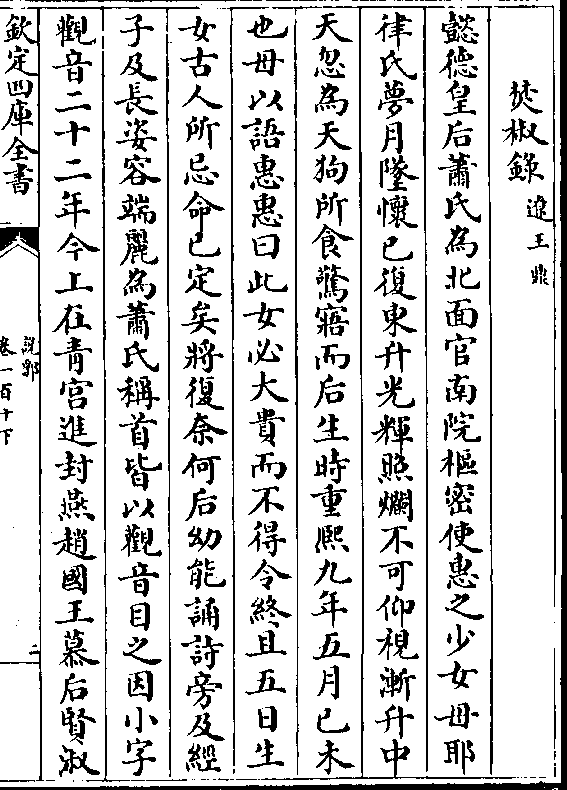 焚椒錄 遼王鼎
懿德皇后蕭氏為北面官南院樞密使惠之少女母耶
律氏夢月墜懷已復東升光輝照爛不可仰視漸升中
天忽為天狗所食驚寤而后生時重熙九年五月己未
也母以語惠惠曰此女必大貴而不得令終且五日生
女古人所忌命已定矣將復奈何后幼能誦詩旁及經
子及長姿容端麗為蕭氏稱首皆以觀音目之因小字
觀音二十二年今上在青宮進封燕趙國王慕后賢淑
欽定四庫全書
說郛
卷一百十下
二